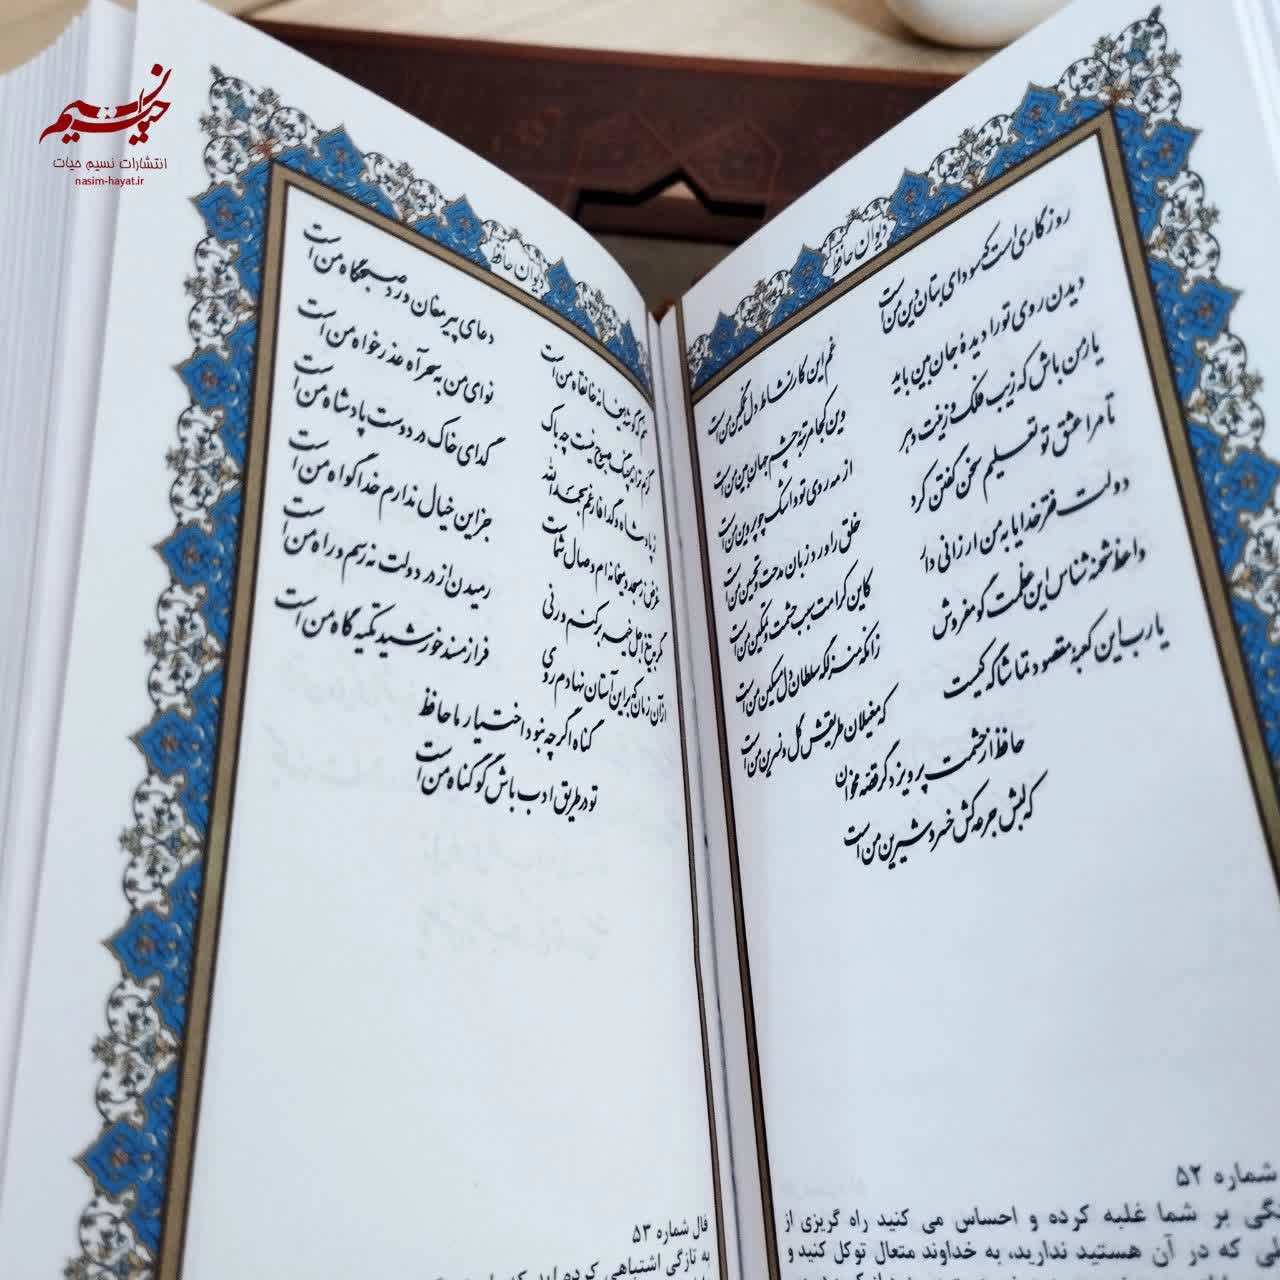 نسیم حیات
انتشارات نسیم حیات
nasim-hayat.ir
دیوان حافظ
روزگاری است که سودای بتان دین من است
غم این کار نشاط دل غمگین من است
دیدن روی تو را دیدهٔ جان بین باید
وین کجا مرتبهٔ چشم جهان بین من است
یار من باش که زیب فلک و زینت دهر
از مه روی تو و اشک چو پروین من است
تا مرا عشق تو تعلیم سخن گفتن کرد
خلق را ورد زبان مدحت و تحسین من است
دولت فقر خدایا به من ارزانی دار
کاین کرامت سبب حشمت و تمکین من است
واعظ شحنه شناس این عظمت گو مفروش
زانکه منزلگه سلطان دل مسکین من است
یا رب این کعبهٔ مقصود تماشاگه کیست
که مغیلان طریقش گل و نسرین من است
حافظ از حشمت پرویز دگر قصه مخوان
که لبش جرعه کش خسرو شیرین من است
شماره ۵۲
بر شما غلبه کرده و احساس می کنید راه گریزی از
که در آن هستید ندارید، به خداوند متعال توکل کنید و
دیوان حافظ
منم که گوشهٔ میخانه خانقاه من است
دعای پیر مغان ورد صبحگاه من است
گرم ترانهٔ چنگ صبوح نیست چه باک
نوای من به سحر آه عذرخواه من است
ز پادشاه و گدا فارغم بحمدالله
گدای خاک در دوست پادشاه من است
غرض ز مسجد و میخانه ام وصال شماست
جز این خیال ندارم خدا گواه من است
مگر به تیغ اجل خیمه برکنم ور نی
رمیدن از در دولت نه رسم و راه من است
از آن زمان که بر این آستان نهادم روی
فراز مسند خورشید تکیه گاه من است
گناه اگرچه نبود اختیار ما حافظ
تو در طریق ادب باش گو گناه من است
فال شماره ۵۳
به تازگی اشتباهی کرده اید که